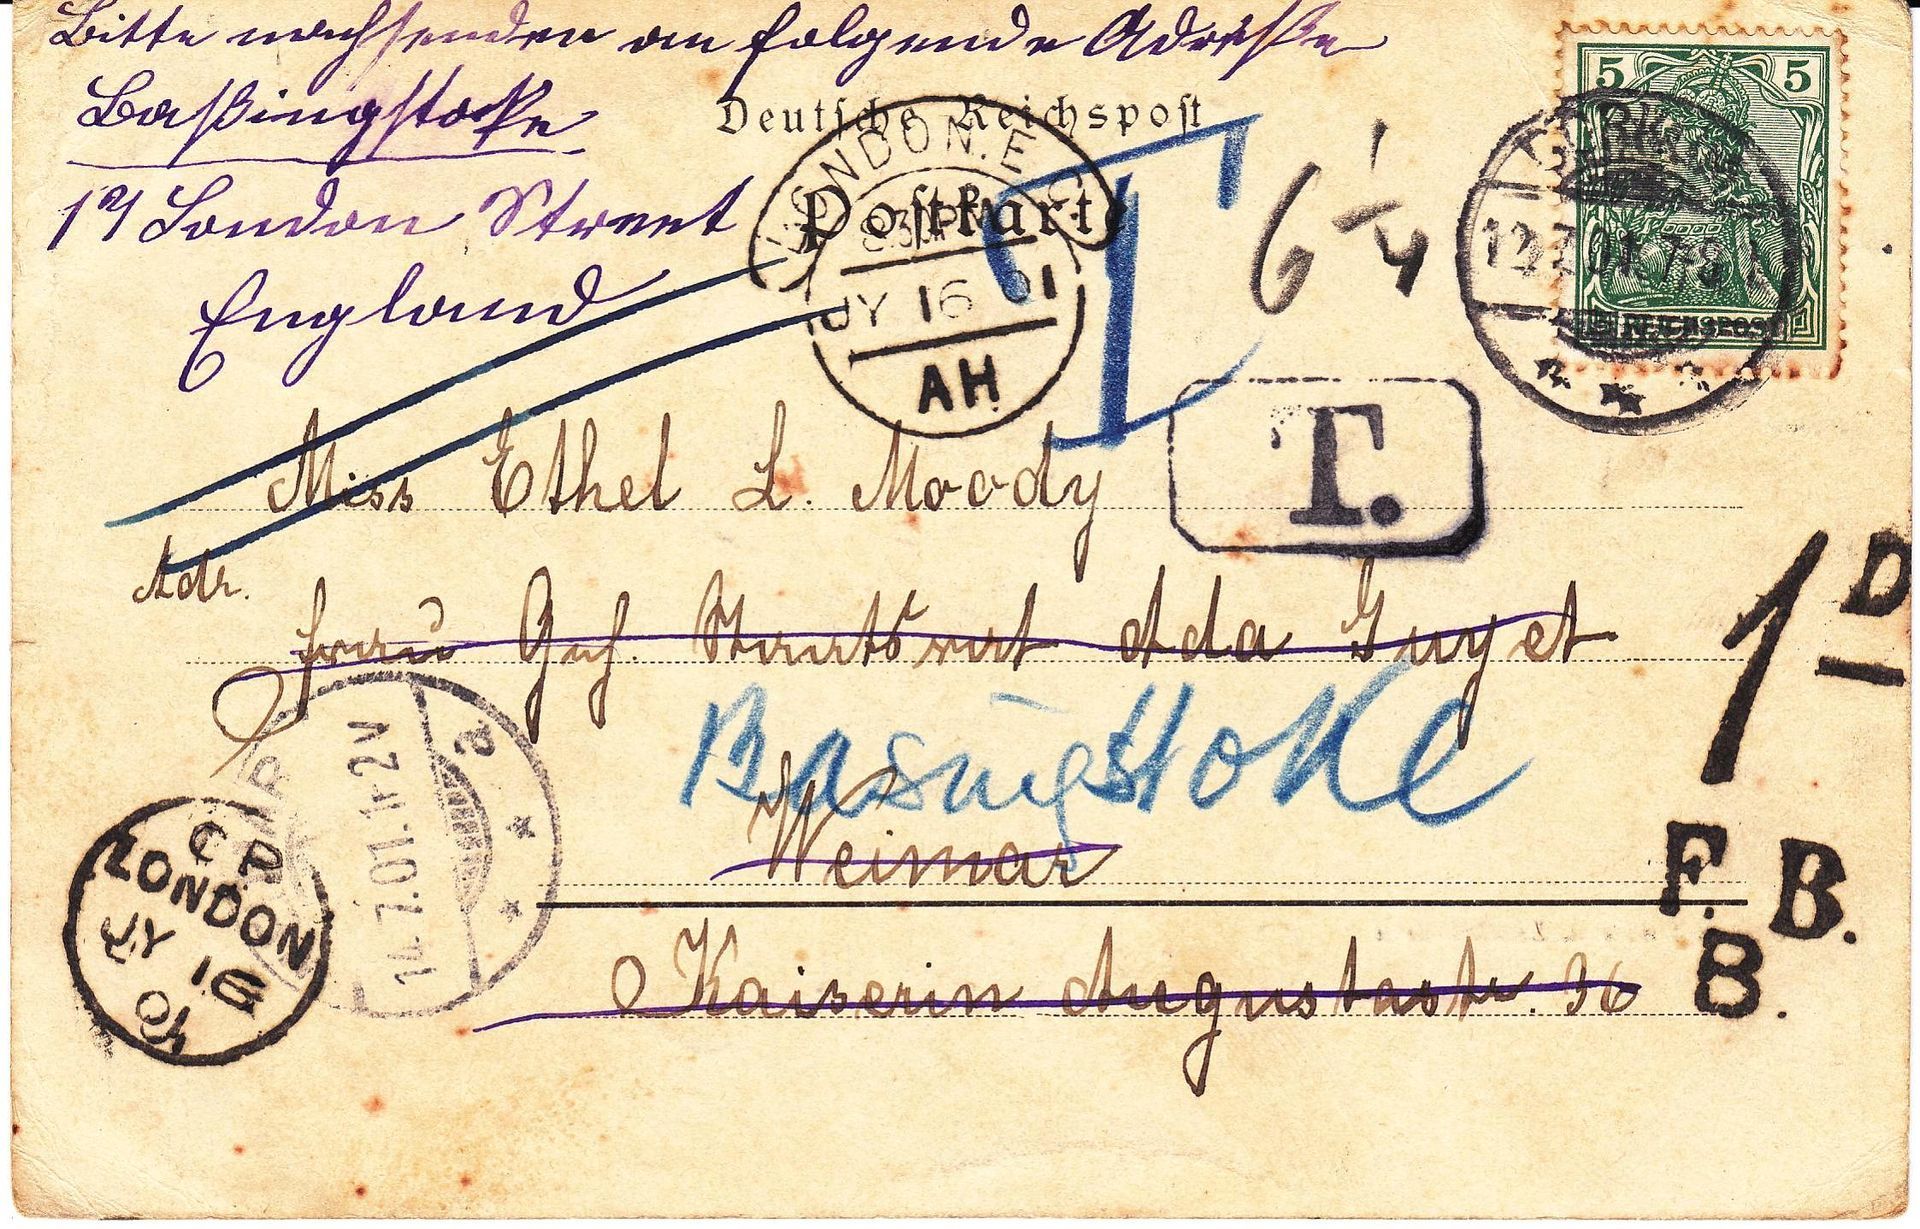 Bitte nachsenden an folgende Adresse
Baßingstoke
17 London Street
England
Deutsche Reichspost
Postkarte
LONDON. E.C.
JY 16 01
AH
T
6 1/4
5 5
REICHSPOST
12.7.01. 7-8
T.
Miss Ethel L. Moody
Adr.
Frau Geh. Staatsrat Ada Guyet
1D
Basingstoke
Weimar
Kaiserin Augustastr. 36
F.B.
B.
14.7.01.11-12V
a
CP
LONDON
JY 16
01